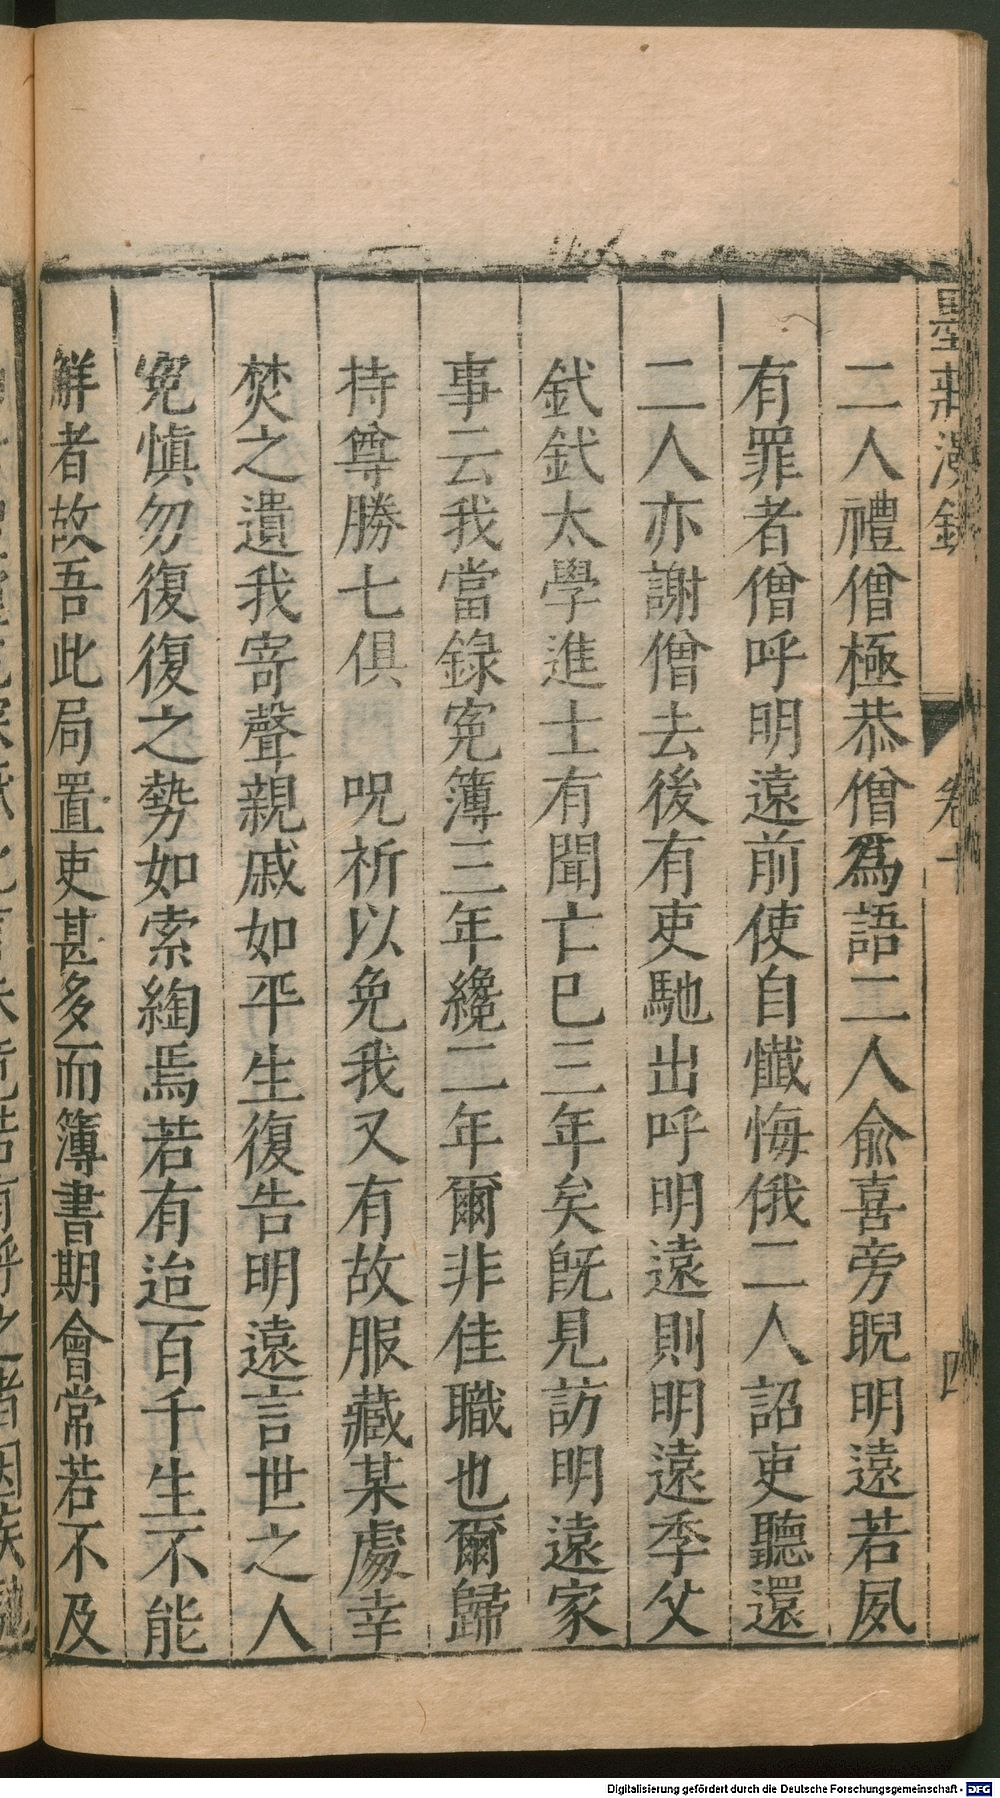 墨莊漫錄
卷十
四
二人禮僧極恭僧爲語二人兪喜旁睨明遠若夙
有罪者僧呼明遠前使自懴悔俄二人詔吏聽還
二人亦謝僧去後有吏馳出呼明遠則明遠季父
釴釴太學進士有聞亡巳三年矣旣見訪明遠家
事云我當錄寃簿三年纔二年爾非佳職也爾歸
持尊勝七俱　呪祈以免我又有故服藏某處幸
焚之遺我寄聲親戚如平生復告明遠言世之人
寃愼勿復復之勢如索綯焉若有迨百千生不能
觧者故吾此局置吏甚多而簿書期會常若不及
Digitalisierung gefördert durch die Deutsche Forschungsgemeinschaft - DFG